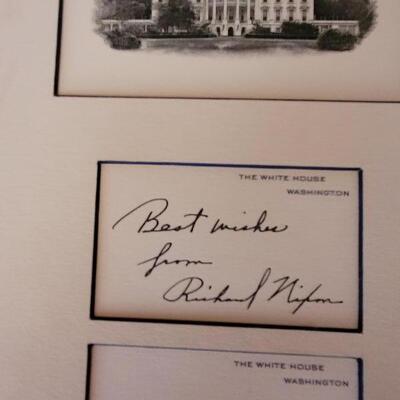 THE WHITE HOUSE
WASHINGTON
Best wishes
from
Richard Nixon
THE WHITE HOUSE
WASHINGTON